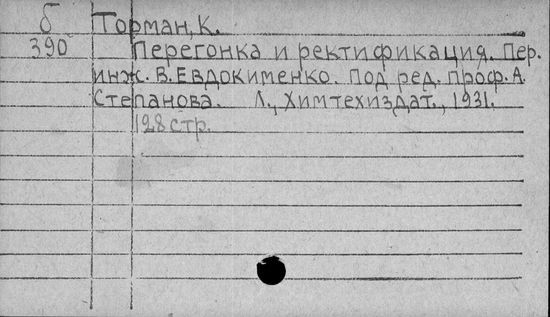 б Торман, К.
390 Перегонка и ректификация. Пер.
инж. В. Евдокименко. Под ред. проф. А.
Степанова. Л., Химтехиздат., 1931.
128 стр.